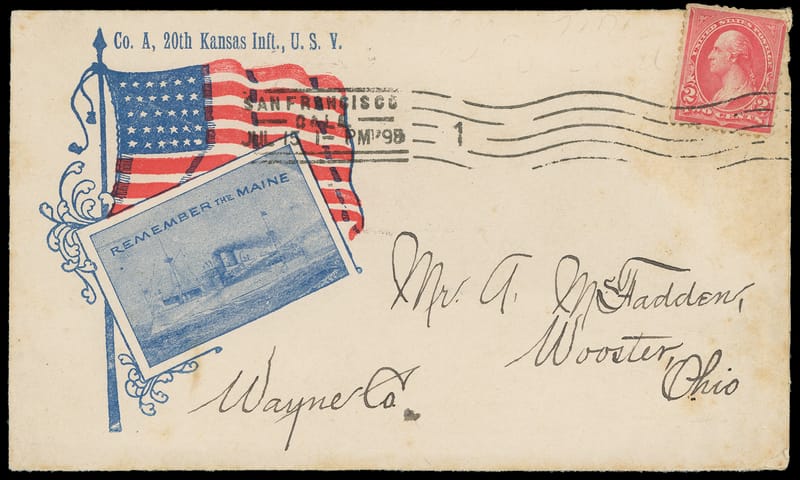 Co. A, 20th Kansas Inft., U. S. V.
UNITED STATES POSTAGE
2 2
TWO CENTS
SAN FRANCISCO
CAL.
JUL 15 1- PM '98
1
REMEMBER THE MAINE
Mr. A. McFadden,
Wooster,
Wayne Co. Ohio